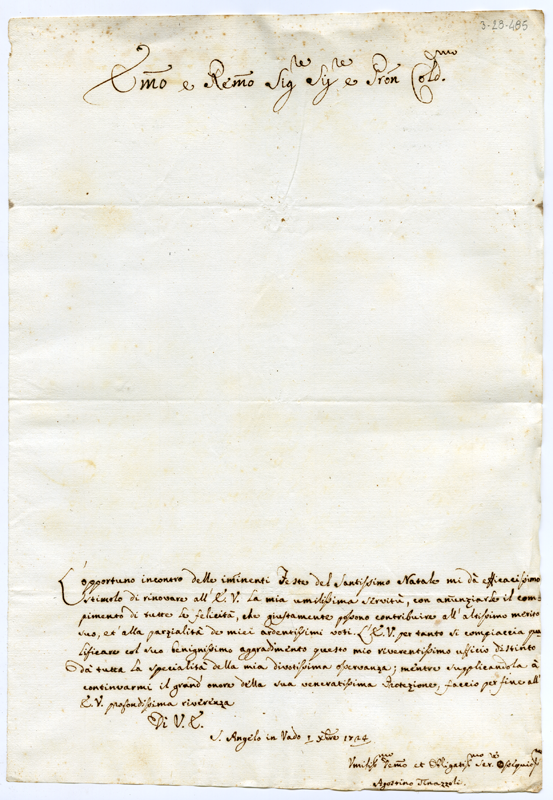 3-29-495
Emo e Remo Sigre Sigre e Pron Coldmo.
L'opportuno incontro delle iminenti Feste del Santissimo Natale mi dà efficacissimo
stimolo di rinovare all'E. V. la mia umilissima servitù, con annunziarle il com=
pimento di tutte le felicità, che giustamente possono contribuire all'altissimo merito
suo, et alla parzialità de miei ardentissimi voti. L'E. V. pertanto si compiaccia qua
lificare col suo benignissimo aggradimento questo mio riverentissimo ufficio distinto
dà tutta la specialità della mia divotissima osservanza; mentre supplicandola à
continuarmi il grand'onore della sua veneratissima Protezione, faccio per fine all'
E. V. profondissima riverenza
Di V. E.
S. Angelo in Vado 1 Xbre 1724
Vmilismo Devmo et Obligatismo Serre Ossequiosmo
Agostino Tinazzoli.